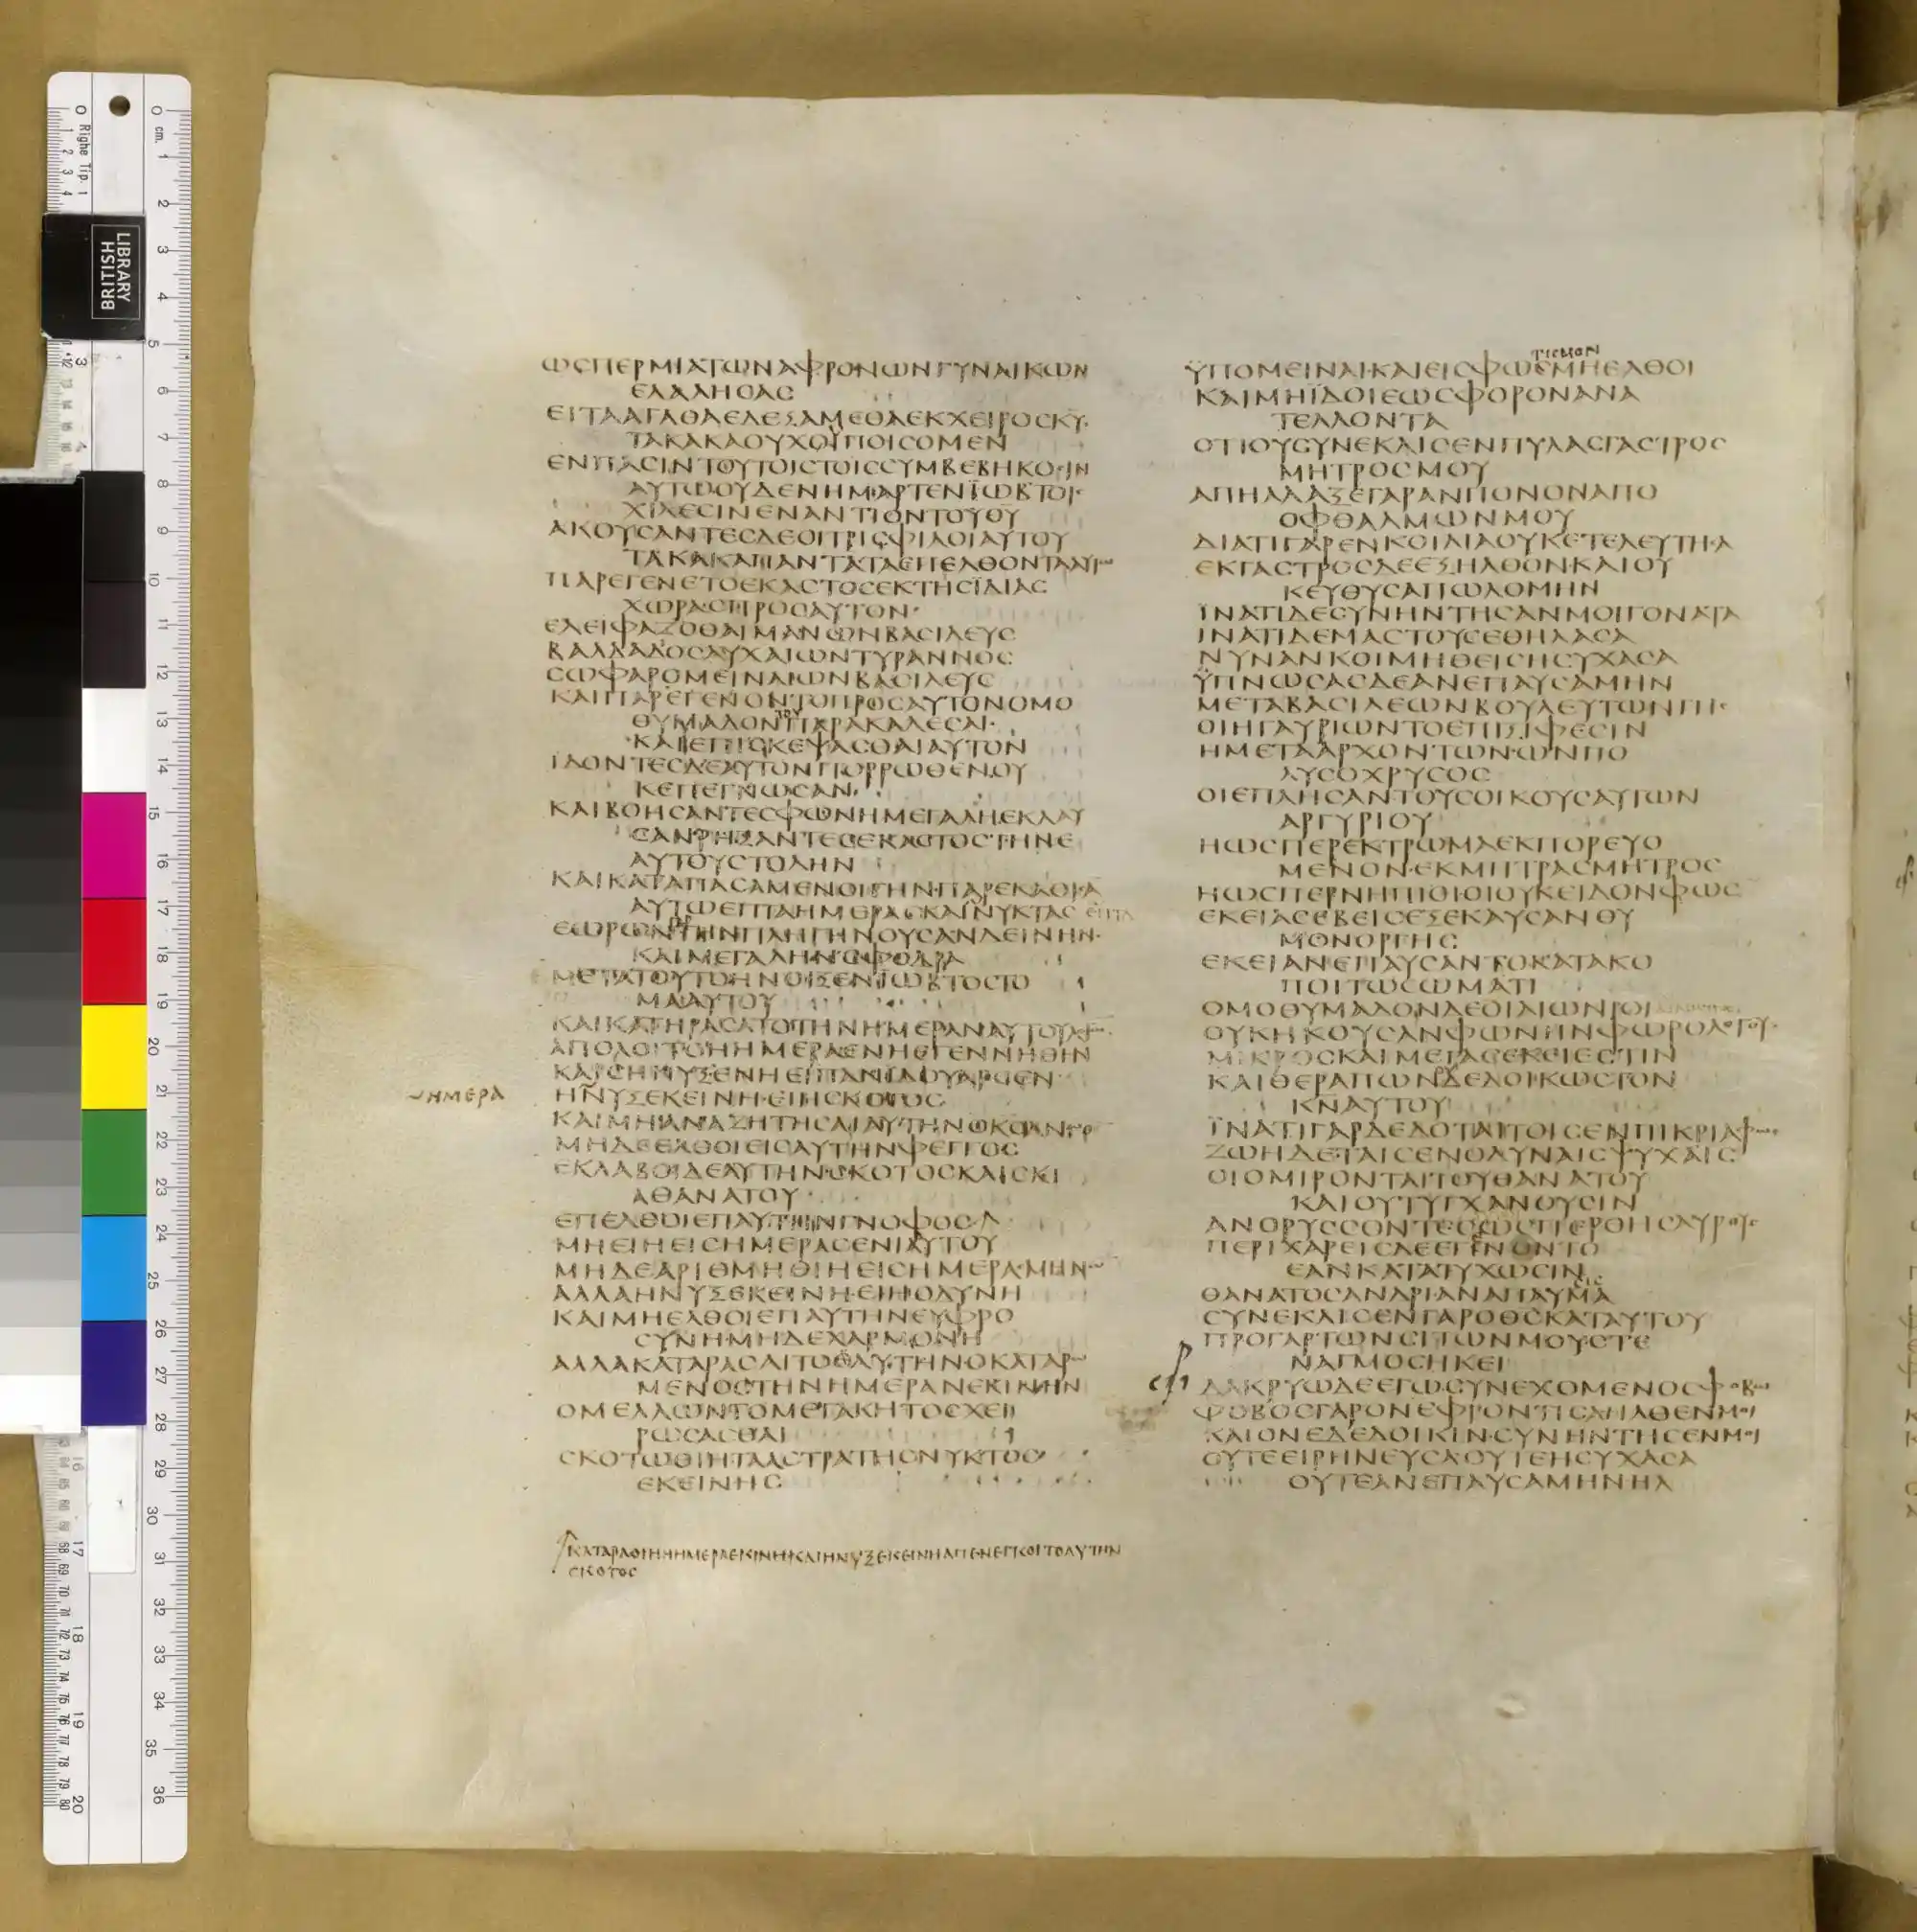 ΩСΠΕΡΜΙΑΤΩΝΑΦΡΟΝΩΝΓΥΝΑΙΚΩΝ
ΕΛΑΛΗСΑС
ΕΙΤΑΑΓΑΘΑΕΔΕΞΑΜΕΘΑΕΚΧΕΙΡΟСΚΥ
ΤΑΚΑΚΑΟΥΧΟΙΠΟΙСΟΜΕΝ
ΕΝΠΑСΙΝΤΟΥΤΟΙСΤΟΙССΥΜΒΕΒΗΚΟСΙΝ
ΑΥΤΩΟΥΔΕΝΗΜΑΡΤΕΝΪΩΒΤΟΙС
ΧΙΛΕСΙΝΕΝΑΝΤΙΟΝΤΟΥΘΥ
ΑΚΟΥСΑΝΤΕСΔΕΟΙΤΡΙСΦΙΛΟΙΑΥΤΟΥ
ΤΑΚΑΚΑΠΑΝΤΑΤΑΕΠΕΛΘΟΝΤΑΑΥΤΩ
ΠΑΡΕΓΕΝΕΤΟΕΚΑСΤΟСΕΚΤΗСΪΔΙΑС
ΧΩΡΑСΠΡΟСΑΥΤΟΝ
ΕΛΕΙΦΑΖΟΘΑΙΜΑΝΩΝΒΑСΙΛΕΥС
ΒΑΛΔΑΔΟСΑΥΧΑΙΩΝΤΥΡΑΝΝΟС
СΩΦΑΡΟΜΕΙΝΑΙΩΝΒΑСΙΛΕΥС
ΚΑΙΠΑΡΕΓΕΝΟΝΤΟΠΡΟСΑΥΤΟΝΟΜΟ
ΘΥΜΑΔΟΝΤΟΥΠΑΡΑΚΑΛΕСΑΙ
ΚΑΙΕΠΙСΚΕΨΑСΘΑΙΑΥΤΟΝ
ΪΔΟΝΤΕСΔΕΑΥΤΟΝΠΟΡΡΩΘΕΝΟΥ
ΚΕΠΕΓΝΩСΑΝ
ΚΑΙΒΟΗСΑΝΤΕСΦΩΝΗΜΕΓΑΛΗΕΚΛΑΥ
СΑΝΡΗΞΑΝΤΕСΕΚΑСΤΟСΤΗΝΕ
ΑΥΤΟΥСΤΟΛΗΝ
ΚΑΙΚΑΤΑΠΑСΑΜΕΝΟΙΓΗΝΠΑΡΕΚΑΘΙСΑ
ΑΥΤΩΕΠΤΑΗΜΕΡΑСΚΑΙΝΥΚΤΑСΕΠΤΑ
ΕΩΡΩΝΓΑΡΤΗΝΠΛΗΓΗΝΟΥСΑΝΔΕΙΝΗΝ
ΚΑΙΜΕΓΑΛΗΝСΦΟΔΡΑ
ΜΕΤΑΤΟΥΤΟΗΝΟΙΞΕΝΪΩΒΤΟСΤΟ
ΜΑΑΥΤΟΥ
ΚΑΙΚΑΤΗΡΑСΑΤΟΤΗΝΗΜΕΡΑΝΑΥΤΟΥΛΕΓΩΝ
ΑΠΟΛΟΙΤΟΗΗΜΕΡΑΕΝΗΕΓΕΝΝΗΘΗΝ
ΚΑΙΗΝΥΞΕΝΗΕΙΠΑΝΙΔΟΥΑΡСΕΝ
ΗΝΥΞΕΚΕΙΝΗΕΙΗСΚΟΤΟС
ΗΜΕΡΑ
ΚΑΙΜΗΑΝΑΖΗΤΗСΑΙΑΥΤΗΝΟΚСΑΝΩΘ
ΜΗΔΕΕΛΘΟΙΕΙСΑΥΤΗΝΦΕΓΓΟС
ΕΚΛΑΒΟΙΔΕΑΥΤΗΝСΚΟΤΟСΚΑΙСΚΙ
ΑΘΑΝΑΤΟΥ
ΕΠΕΛΘΟΙΕΠΑΥΤΗΝΓΝΟΦΟС
ΜΗΕΙΗΕΙСΗΜΕΡΑСΕΝΙΑΥΤΟΥ
ΜΗΔΕΑΡΙΘΜΗΘΙΗΕΙСΗΜΕΡΑΜΗΝ
ΑΛΛΑΗΝΥΞΕΚΕΙΝΗΕΙΗΟΔΥΝΗ
ΚΑΙΜΗΕΛΘΟΙΕΠΑΥΤΗΝΕΥΦΡΟ
СΥΝΗΜΗΔΕΧΑΡΜΟΝΗ
ΑΛΛΑΚΑΤΑΡΑСΑΙΤΟΑΥΤΗΝΟΚΑΤΑΡΩ
ΜΕΝΟСΤΗΝΗΜΕΡΑΝΕΚΙΝΗΝ
ΟΜΕΛΛΩΝΤΟΜΕΓΑΚΗΤΟСΧΕΙ
ΡΩСΑСΘΑΙ
СΚΟΤΩΘΙΗΤΑΑСΤΡΑΤΗСΝΥΚΤΟС
ΕΚΕΙΝΗС
ΚΑΤΑΡΑΘΙΗΗΗΜΕΡΑΕΚΙΝΗΚΑΙΗΝΥΞΕΚΕΙΝΗΑΠΕΝΕΓΚΟΙΤΟΑΥΤΗΝ
СΚΟΤΟС
ΫΠΟΜΕΙΝΑΙΚΑΙΕΙСΦΩСΜΗΕΛΘΟΙ
ΤΙСΜΟΝ
ΚΑΙΜΗΪΔΟΙΕΩСΦΟΡΟΝΑΝΑ
ΤΕΛΛΟΝΤΑ
ΟΤΙΟΥСΥΝΕΚΛΙСΕΝΠΥΛΑСΓΑСΤΡΟС
ΜΗΤΡΟСΜΟΥ
ΑΠΗΛΛΑΞΕΓΑΡΑΝΠΟΝΟΝΑΠΟ
ΟΦΘΑΛΜΩΝΜΟΥ
ΔΙΑΤΙΓΑΡΕΝΚΟΙΛΙΑΟΥΚΕΤΕΛΕΥΤΗСΑ
ΕΚΓΑСΤΡΟСΔΕΕΞΗΛΘΟΝΚΑΙΟΥ
ΚΕΥΘΥСΑΠΩΛΟΜΗΝ
ΪΝΑΤΙΔΕСΥΝΗΝΤΗСΑΝΜΟΙΓΟΝΑΤΑ
ΙΝΑΤΙΔΕΜΑСΤΟΥСΕΘΗΛΑСΑ
ΝΥΝΑΝΚΟΙΜΗΘΕΙСΗСΥΧΑСΑ
ΫΠΝΩСΑСΔΕΑΝΕΠΑΥСΑΜΗΝ
ΜΕΤΑΒΑСΙΛΕΩΝΒΟΥΛΕΥΤΩΝΓΗС
ΟΙΗΓΑΥΡΙΩΝΤΟΕΠΙΞΙΦΕСΙΝ
ΗΜΕΤΑΑΡΧΟΝΤΩΝΩΝΠΟ
ΛΥСΟΧΡΥСΟС
ΟΙΕΠΛΗСΑΝΤΟΥСΟΙΚΟΥСΑΥΤΩΝ
ΑΡΓΥΡΙΟΥ
ΗΩСΠΕΡΕΚΤΡΩΜΑΕΚΠΟΡΕΥΟ
ΜΕΝΟΝΕΚΜΗΤΡΑСΜΗΤΡΟС
ΗΩСΠΕΡΝΗΠΙΟΙΟΙΟΥΚΕΙΔΟΝΦΩС
ΕΚΕΙΑСΕΒΕΙСΕΞΕΚΑΥСΑΝΘΥ
ΜΟΝΟΡΓΗС
ΕΚΕΙΑΝΕΠΑΥСΑΝΤΟΚΑΤΑΚΟ
ΠΟΙΤΩСΩΜΑΤΙ
ΟΜΟΘΥΜΑΔΟΝΔΕΟΙΑΙΩΝΙΟΙ
ΟΥΚΗΚΟΥСΑΝΦΩΝΗΝΦΩΡΟΛΟΓΟΥ
ΜΙΚΡΟСΚΑΙΜΕΓΑСΕΚΕΙΕСΤΙΝ
ΚΑΙΘΕΡΑΠΩΝΔΕΔΟΙΚΩСΤΟΝ
ΚΝΑΥΤΟΥ
ΪΝΑΤΙΓΑΡΔΕΔΟΤΑΙΤΟΙСΕΝΠΙΚΡΙΑΦΩС
ΖΩΗΔΕΤΑΙСΕΝΟΔΥΝΑΙСΨΥΧΑΙС
ΟΙΟΜΙΡΟΝΤΑΙΤΟΥΘΑΝΑΤΟΥ
ΚΑΙΟΥΤΥΓΧΑΝΟΥСΙΝ
ΑΝΟΡΥССΟΝΤΕСΩСΠΕΡΘΗСΑΥΡΟΥС
ΠΕΡΙΧΑΡΕΙСΔΕΕΓΕΝΟΝΤΟ
ΕΑΝΚΑΤΑΤΥΧΩСΙΝ
ΘΑΝΑΤΟСΑΝΔΡΙΑΝΑΠΑΥΜΑ
СΥΝΕΚΛΙСΕΝΓΑΡΟΘСΚΑΤΑΥΤΟΥ
ΠΡΟΓΑΡΤΩΝСΙΤΩΝΜΟΥСΤΕ
ΝΑΓΜΟСΗΚΕΙ
ΔΑΚΡΥΩΔΕΕΓΩСΥΝΕΧΟΜΕΝΟСΦΟΒΩ
ΦΟΒΟСΓΑΡΟΝΕΦΡΟΝΤΙСΑΗΛΘΕΝΜΟΙ
ΚΑΙΟΝΕΔΕΔΟΙΚΙΝСΥΝΗΝΤΗСΕΝΜΟΙ
ΟΥΤΕΕΙΡΗΝΕΥСΑΟΥΤΕΗСΥΧΑСΑ
ΟΥΤΕΑΝΕΠΑΥСΑΜΗΝΗΛ
BRITISH
LIBRARY